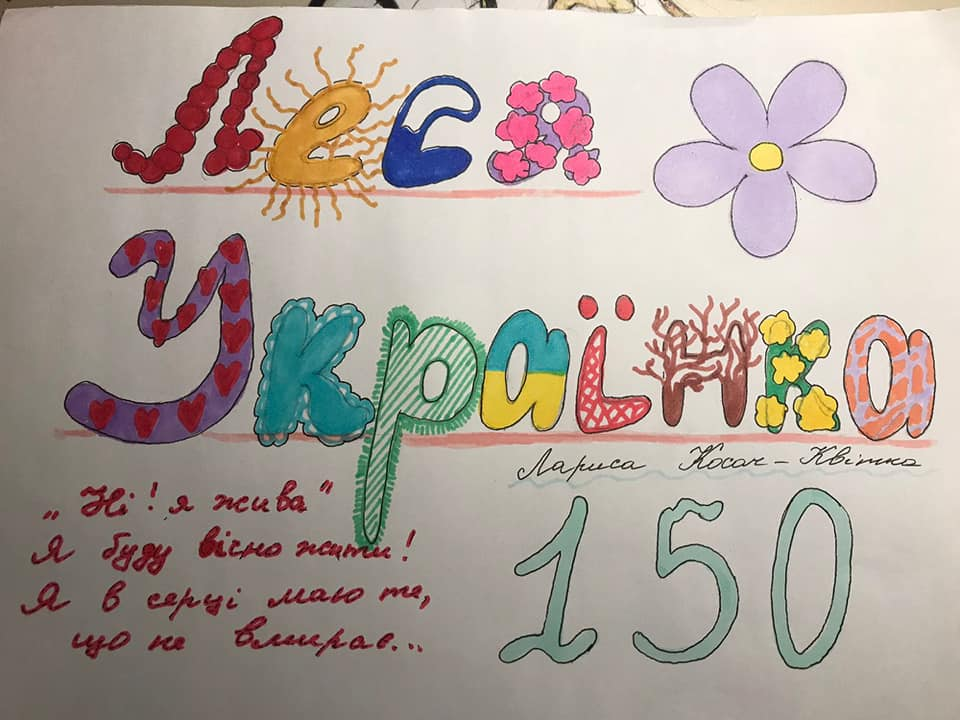 Леся
Українка
Лариса Косач-Квітка
„Ні! я жива"
Я буду вічно жити!
Я в серці маю те,
що не вмирає...
150